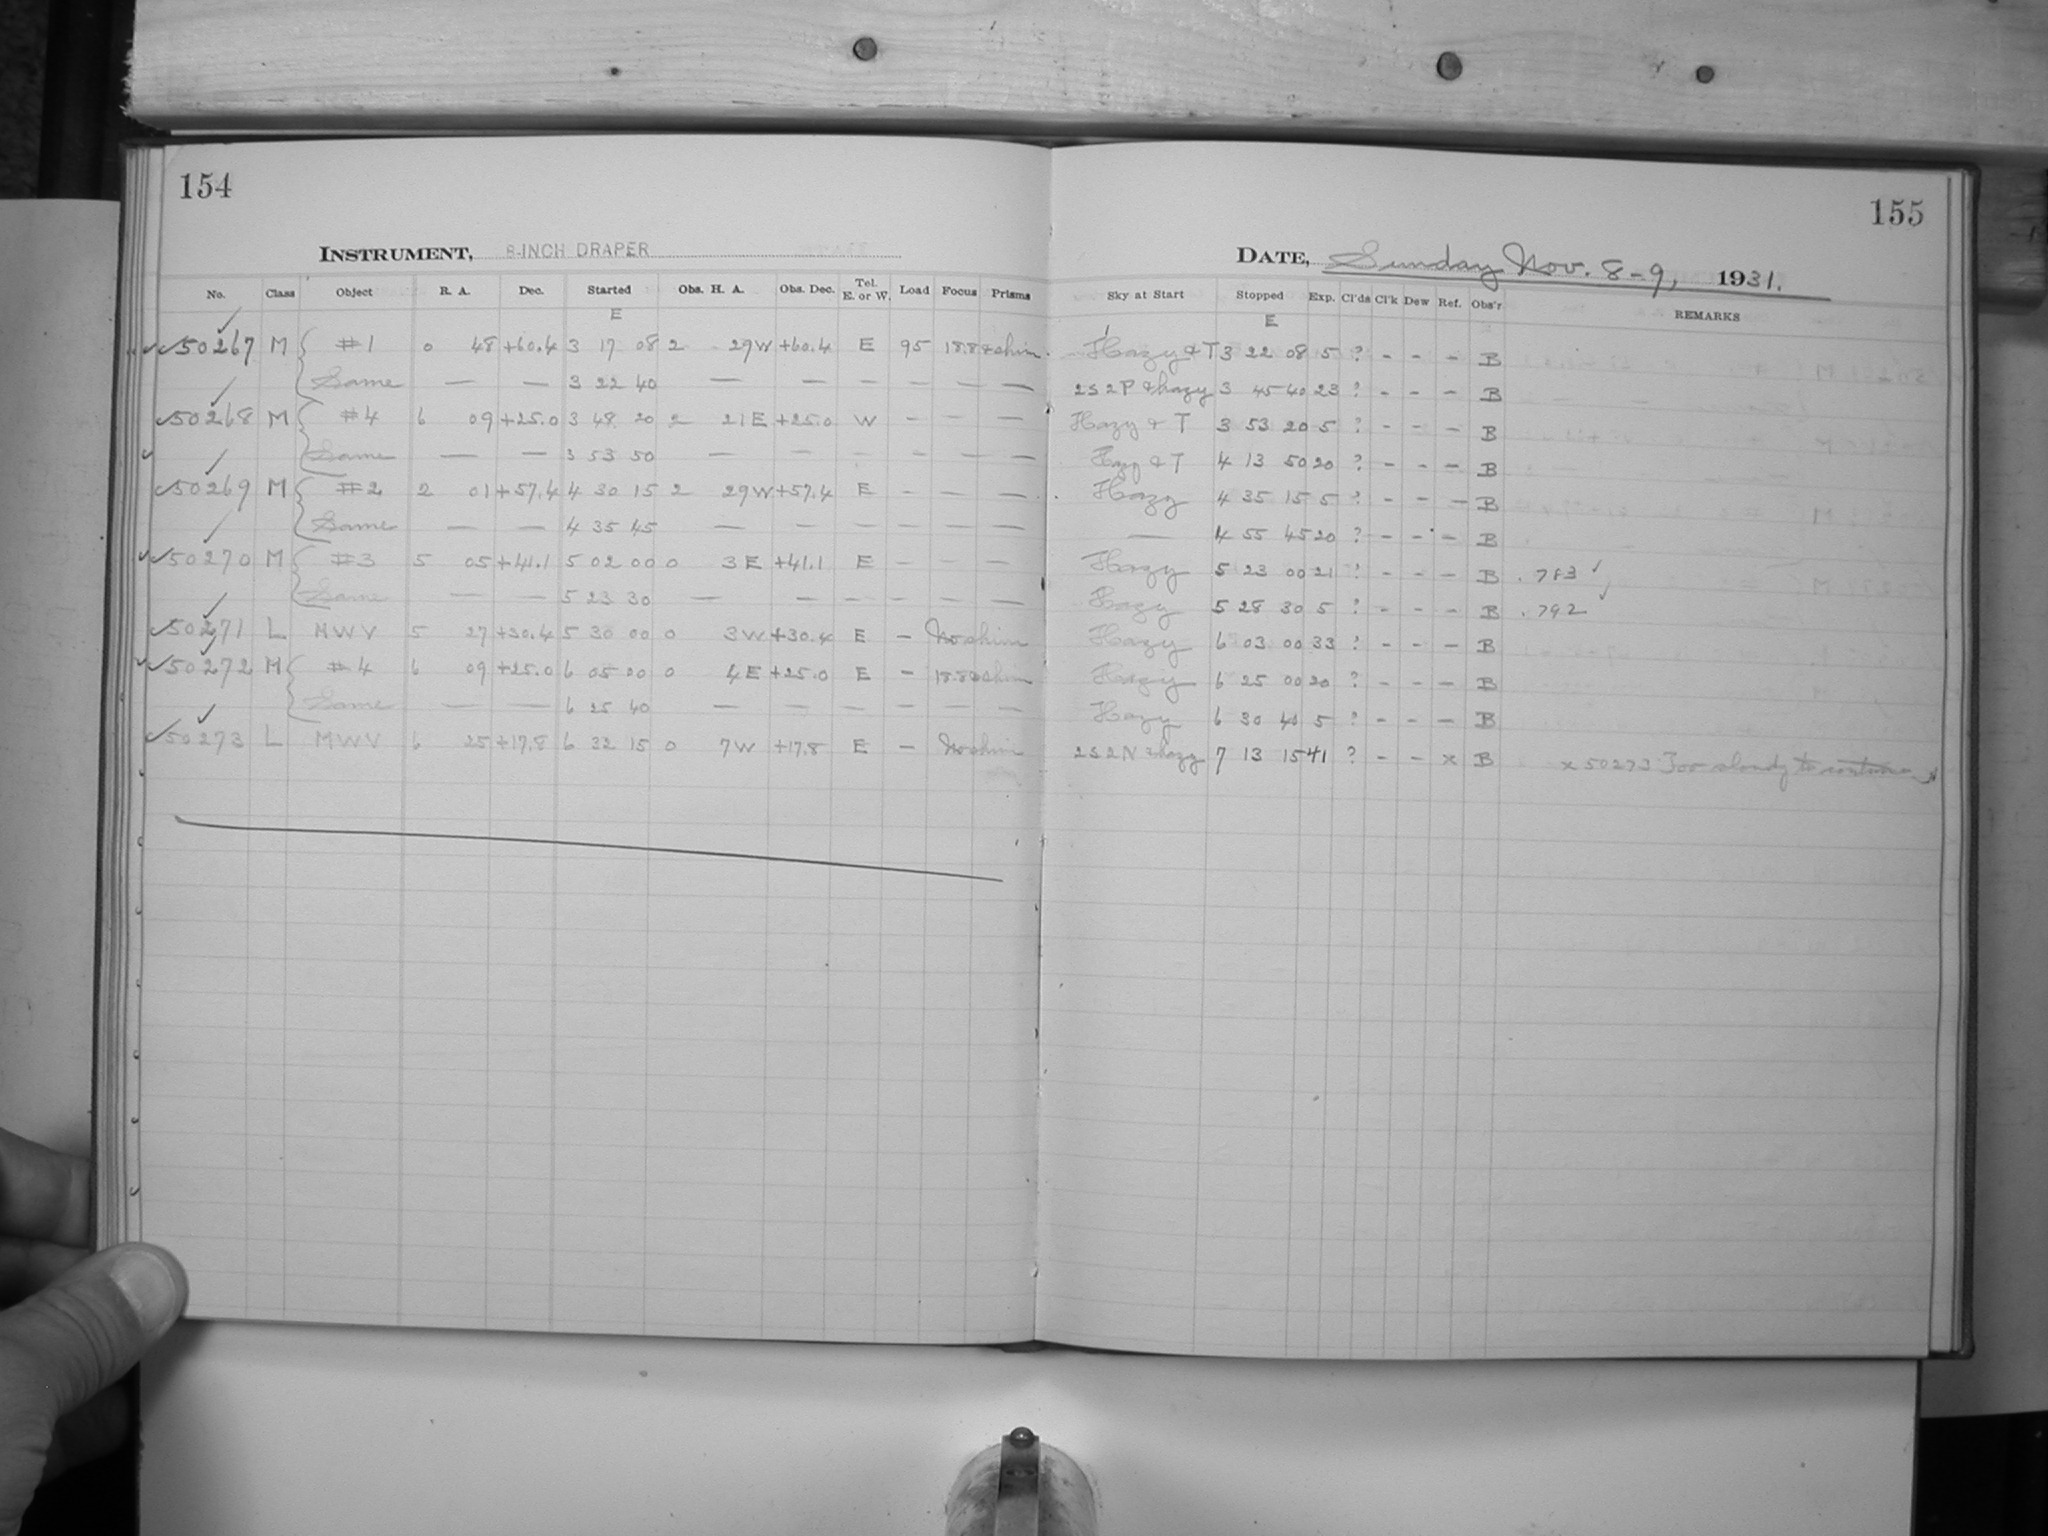 154
INSTRUMENT, 8-INCH DRAPER
No. Class Object R. A. Dec. Started Obs. H. A. Obs. Dec. Tel. E. or W. Load Focus Prisms
E
50267 M #1 0 48 +60.4 3 17 08 2 29W +60.4 E 95 18.8 + shim
Same — — 3 22 40 — — — — — —
50268 M #4 6 09 +25.0 3 48 20 2 21E +25.0 W – – —
Same — — 3 53 50 — — – – – —
50269 M #2 2 01 +57.4 4 30 15 2 29W +57.4 E – – —
Same — — 4 35 45 — — — – – —
50270 M #3 5 05 +41.1 5 02 00 0 3E +41.1 E – – —
Same — — 5 23 30 — — — — — —
50271 L MWV 5 27 +30.4 5 30 00 0 3W +30.4 E – No shim
50272 M #4 6 09 +25.0 6 05 00 0 4E +25.0 E – 18.8 + shim
Same — — 6 25 40 — — — — — —
50273 L MWV 6 25 +17.8 6 32 15 0 7W +17.8 E – No shim
155
DATE, Sunday Nov. 8-9, 1931.
Sky at Start Stopped Exp. Cl'ds Cl'k Dew Ref. Obs'r REMARKS
E
Hazy & T 3 22 08 5 ? - - - B
2S2P & hazy 3 45 40 23 ? - - - B
Hazy & T 3 53 20 5 ? - - - B
Hazy & T 4 13 50 20 ? - - - B
Hazy 4 35 15 5 ? - - - B
— 4 55 45 20 ? - - - B
Hazy 5 23 00 21 ? - - - B .783
Hazy 5 28 30 5 ? - - - B .792
Hazy 6 03 00 33 ? - - - B
Hazy 6 25 00 20 ? - - - B
Hazy 6 30 40 5 ? - - - B
2S2N & hazy 7 13 15 41 ? - - x B x 50273 Too cloudy to continue